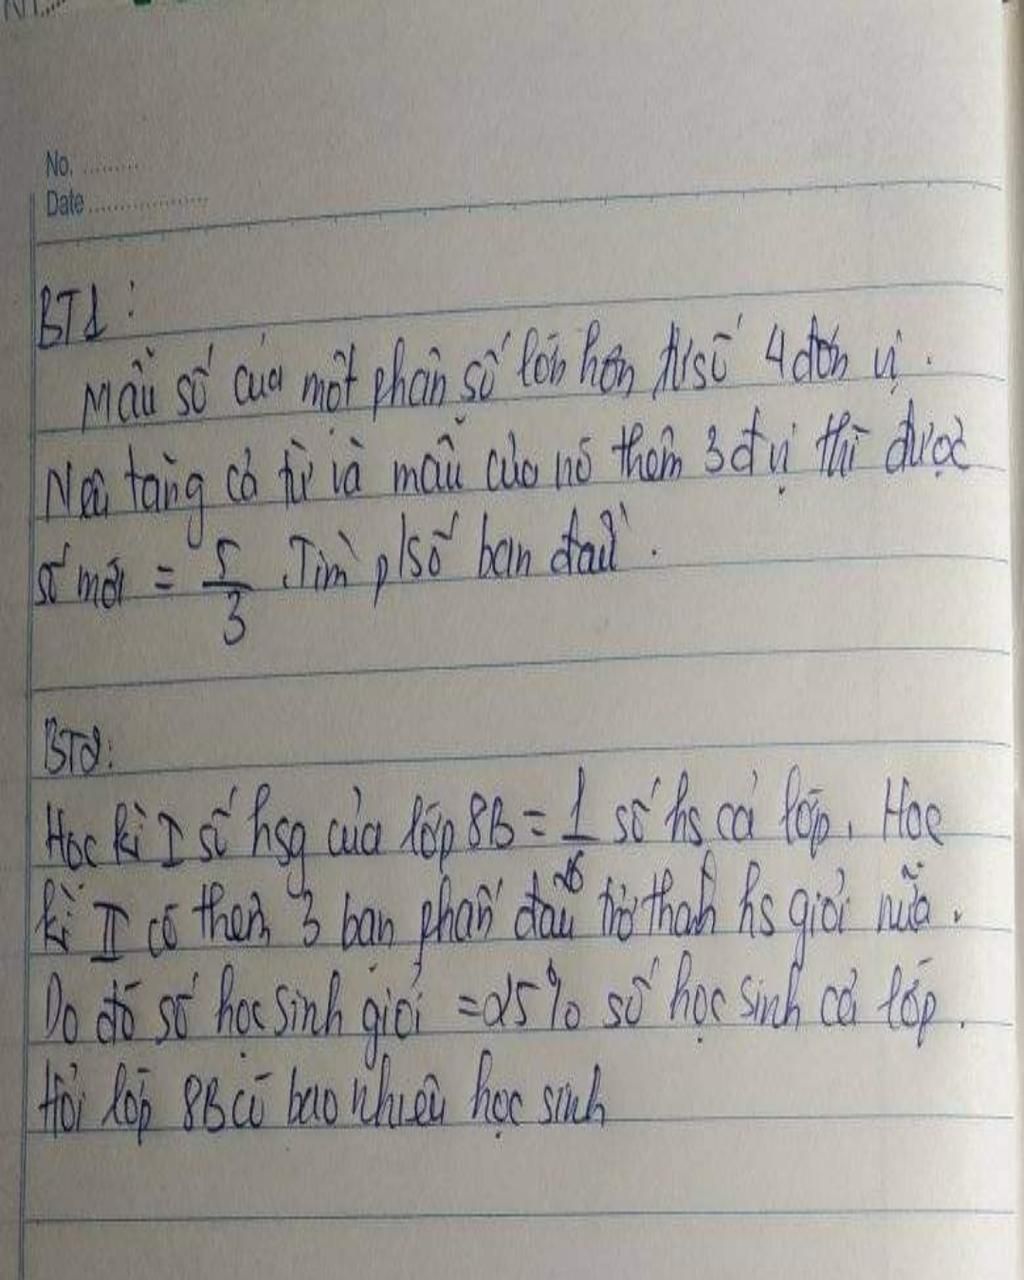 No. .........
Date ..................
BT1:
Mẫu số của một phân số lớn hơn t/số 4 đơn vị.
Nếu tăng cả tử và mẫu của nó thêm 3 đ vị thì được
số mới = 5/3 . Tìm p/số ban đầu.
BT2:
Học kì I số hsg của lớp 8B = 1/6 số hs cả lớp. Học
kì II có thêm 3 bạn phấn đấu trở thành hs giỏi nữa.
Do đó số học sinh giỏi = 25% số học sinh cả lớp.
Hỏi lớp 8B có bao nhiêu học sinh